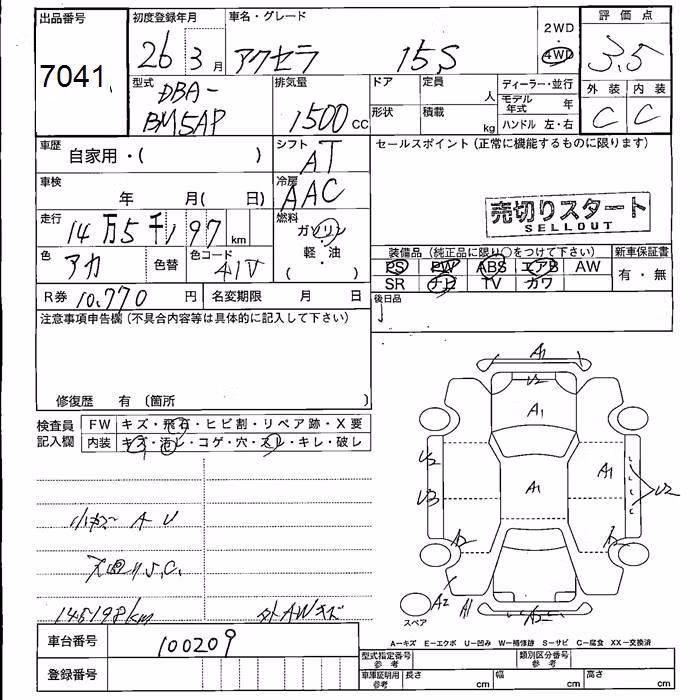 出品番号 初度登録年月 車名・グレード 2WD・4WD 評価点
7041 26 3月 アクセラ 15S 3.5
型式 DBA-BM5AP 排気量 1500cc ドア 定員 人 ディーラー・並行
形状 積載 kg モデル年式 年 外装 内装
ハンドル 左・右 C C
車歴 自家用・( ) シフト AT セールスポイント(正常に機能するものに限ります)
車検 年 月( 日) 冷房 AAC
売切りスタート
SELLOUT
走行 14万5千197km 燃料 ガソリン
軽・油
( ・ )
色 アカ 色替 色コード 41V
装備品(純正品に限り○をつけて下さい) 新車保証書
PS PW ABS エアB AW 有・無
SR ナビ TV カワ
R券 10,770円 名変期限 月 日 後日品
注意事項申告欄(不具合内容等は具体的に記入して下さい)
修復歴 有 〔箇所 〕
検査員 FW キズ・飛石・ヒビ割・リペア跡・X要
記入欄 内装 キズ・汚レ・コゲ・穴・スレ・キレ・破レ
小キズ A U
U.S.C.
145198km 外AWキズ
A1
U2
A1
U2 A1 A1
U3 U2
A2
A2 A1 A2
スペア
A-キズ E-エクボ U-凹み W-補修跡 S-サビ C-腐食 XX-交換済
車台番号 100209
型式指定番号 参考 類別区分番号 参考
登録番号
車庫証明用 参考 長さ cm 幅 cm 高さ cm